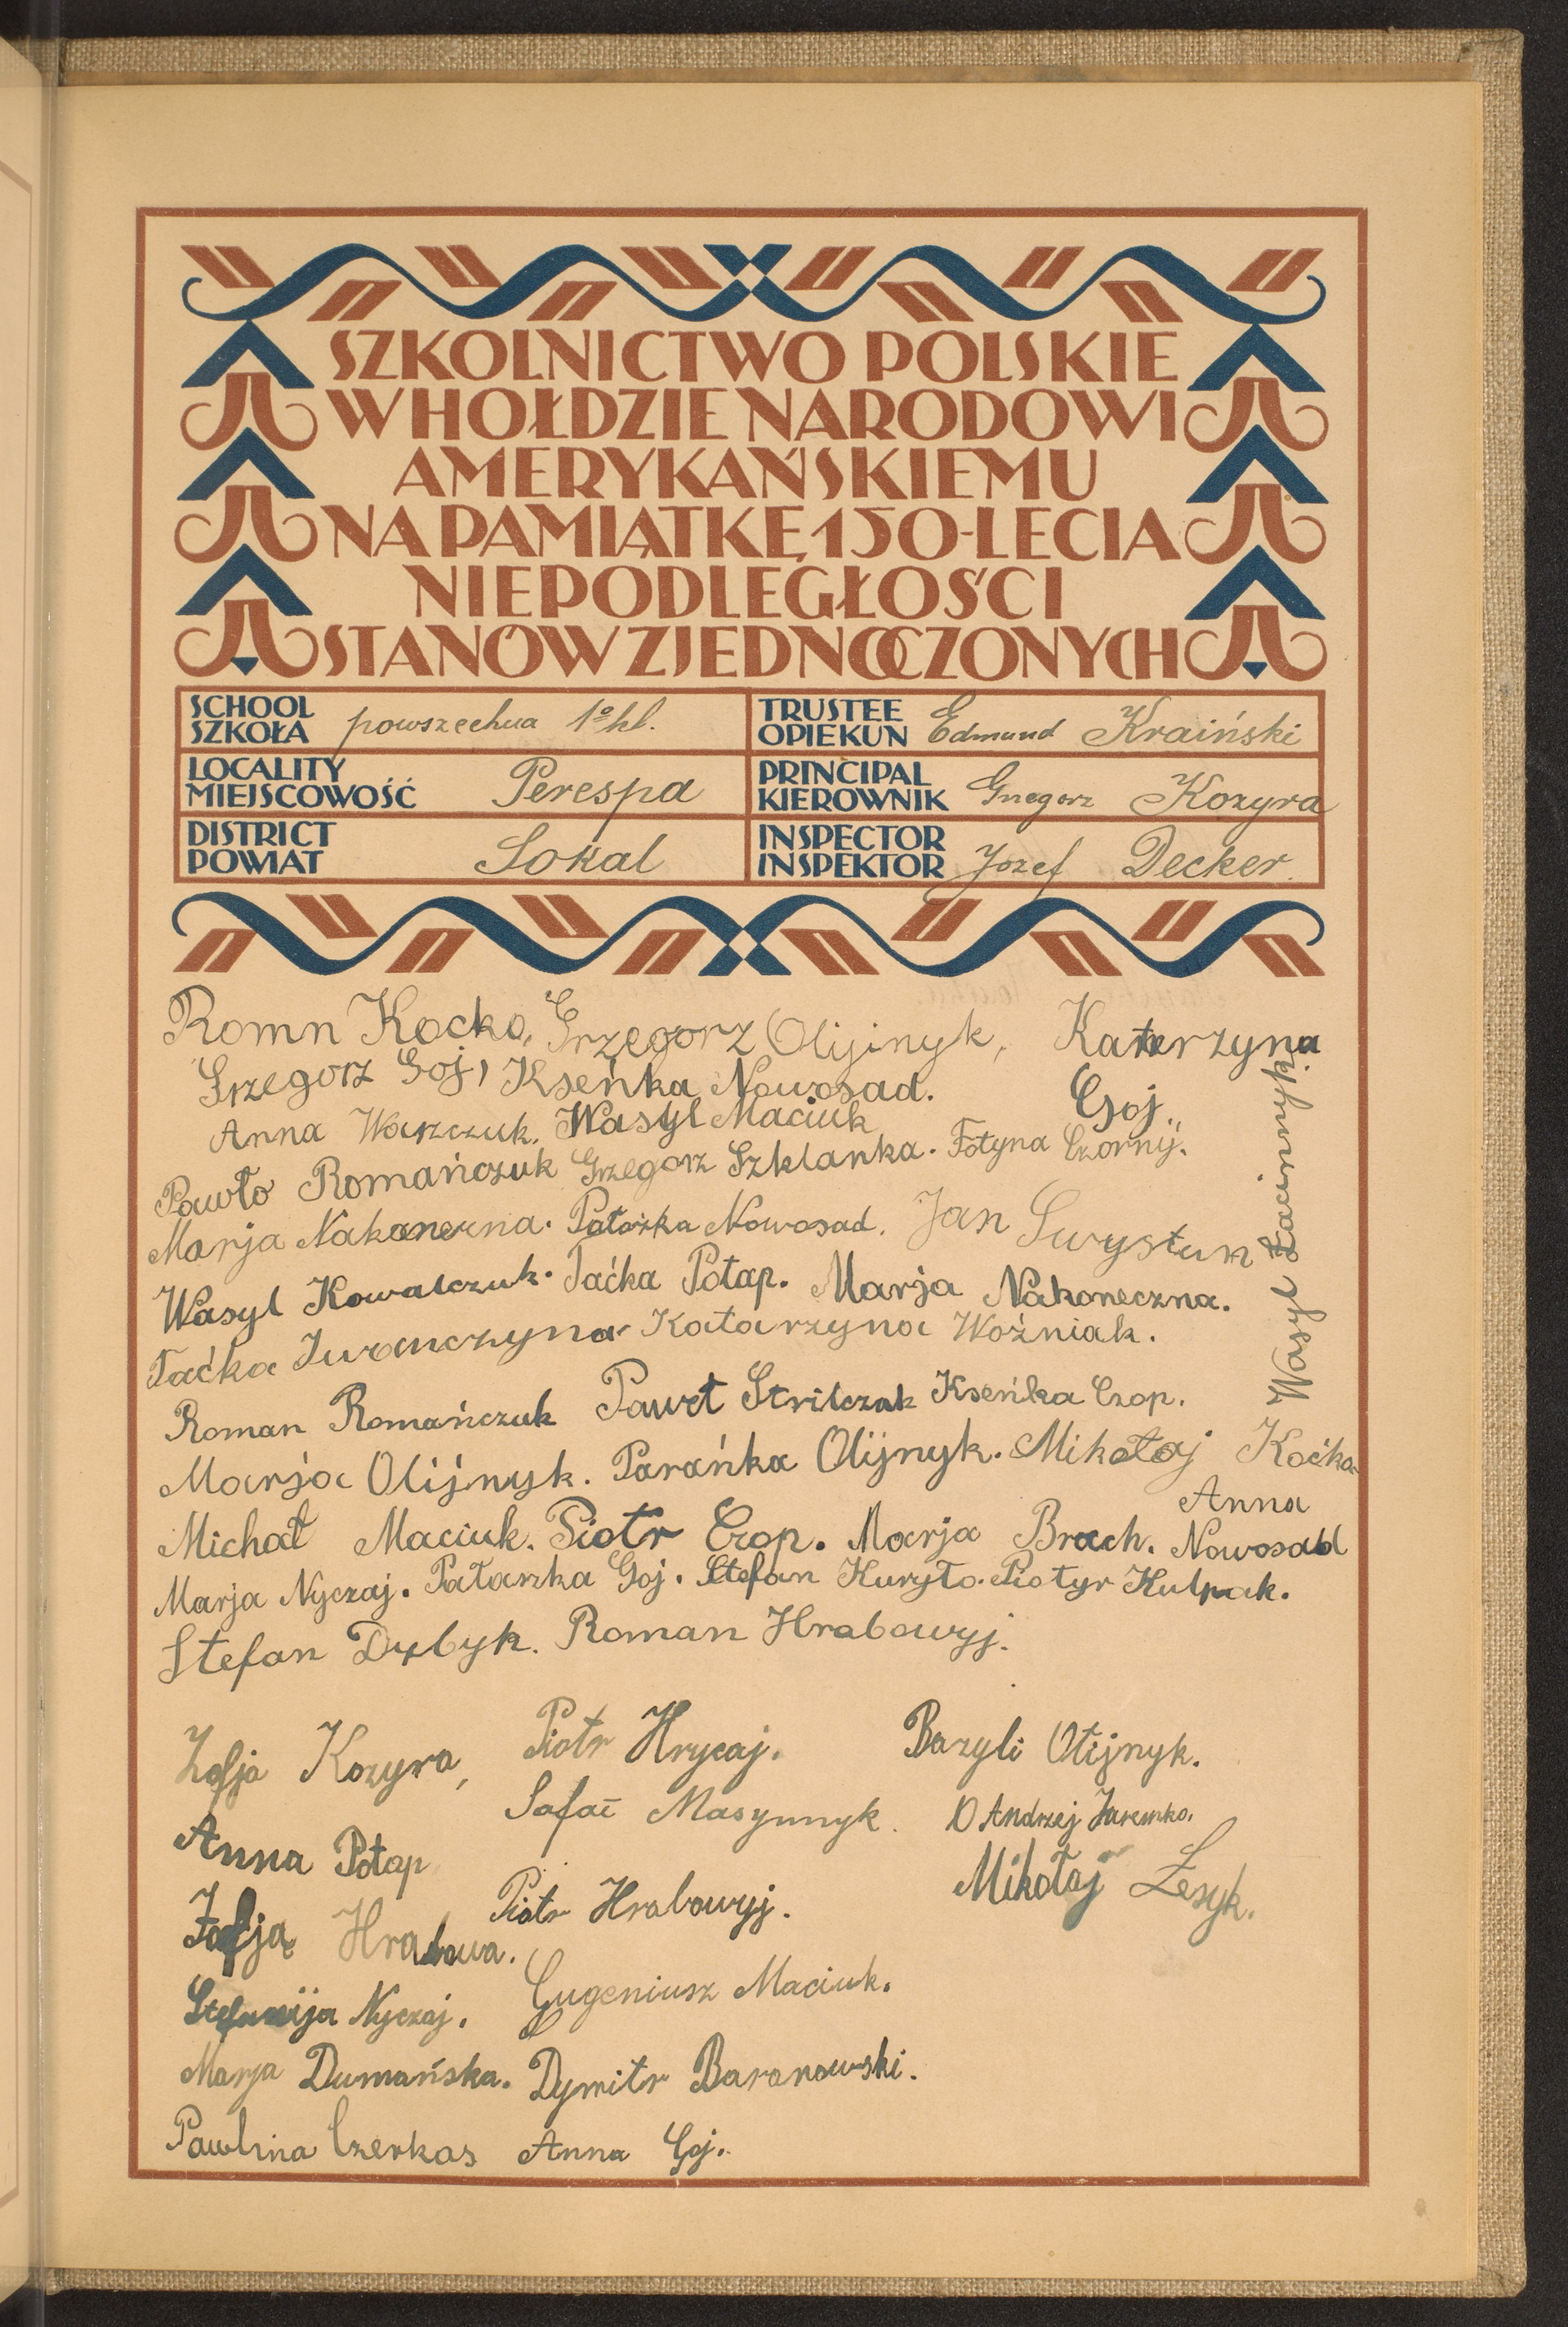 SZKOLNICTWO POLSKIE
W HOŁDZIE NARODOWI
AMERYKAŃSKIEMU
NA PAMIĄTKĘ 150-LECIA
NIEPODLEGŁOŚCI
STANÓW ZJEDNOCZONYCH
SCHOOL
SZKOŁA powszechna 1º kl.
TRUSTEE
OPIEKUN Edmund Kraiński
LOCALITY
MIEJSCOWOŚĆ Perespa
PRINCIPAL
KIEROWNIK Grzegorz Kozyra
DISTRICT
POWIAT Sokal
INSPECTOR
INSPEKTOR Józef Decker.
Romn Kocko, Grzegorz Olijinyk, Katerzyna
Grzegorz Goj, Kseńka Nowosad. Goj.
Anna Warzczuk. Wasyl Maciuk
Pawło Romańczuk Grzegorz Szklanka. Fotyna Czornij.
Marja Nakonerna. Patarka Nowosad. Jan Swystun
Wasyl Łacinnyk.
Wasyl Kowalczuk. Taćka Potap. Marja Nakoneczna.
Taćka Iwanczyna Katarzyna Woźniak.
Roman Romańczuk Paweł Strilczuk Kseńka Czop.
Marja Olijnyk. Parańka Olijnyk. Mikołaj Koćka
Michał Maciuk. Piotr Czop. Marja Brach. Anna Nowosad
Marja Nyczaj. Pałaszka Goj. Stefan Kuryło. Piotyr Kulpak.
Stefan Dybyk. Roman Hrabowyj.
Zofja Kozyra, Piotr Hrycaj. Bazyli Olijnyk.
Safat Masynnyk. D Andrzej Jaremko.
Anna Potap Mikołaj Lesyk.
Zofja Hrabowa. Piotr Hrabowyj.
Stefanija Nyczaj. Eugeniusz Maciuk.
Marja Dumańska. Dymitr Baranowski.
Pawlina Czerkas Anna Goj.